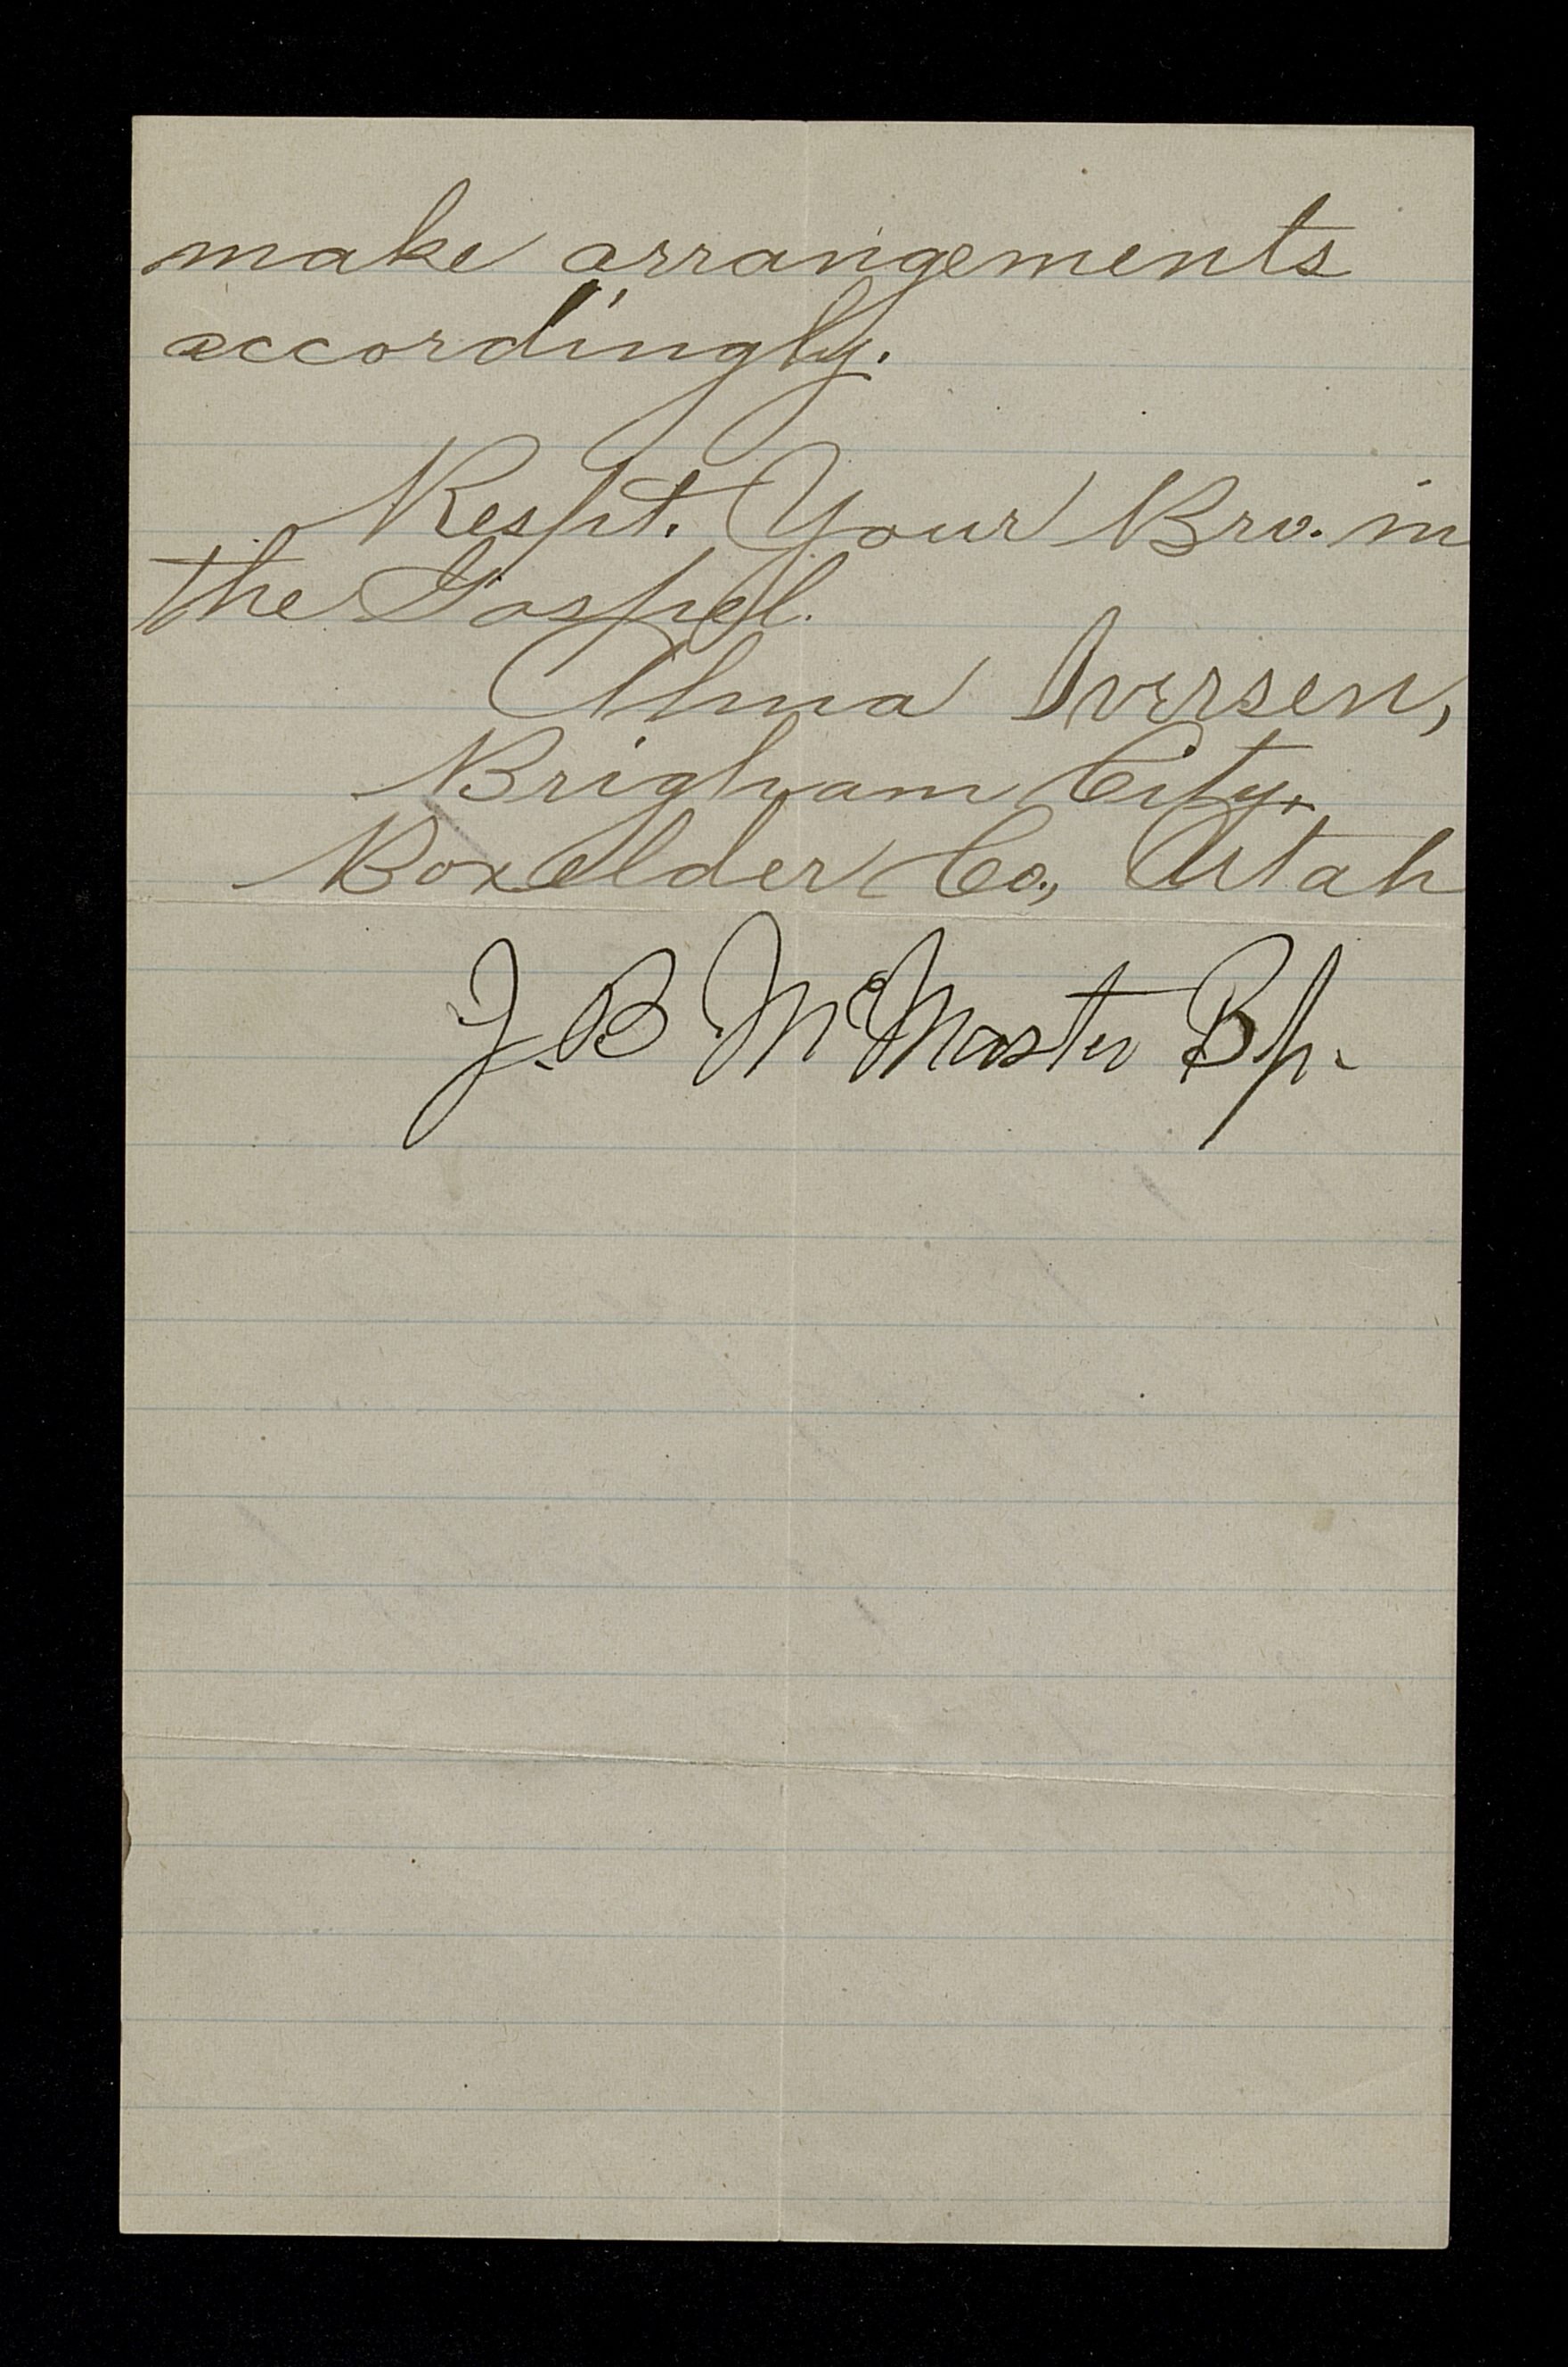 make arrangements
accordingly.
Respt. Your Bro. in
the Gospel.
Alma Iversen,
Brigham City,
Boxelder Co., Utah
J. B McMaster Bp.